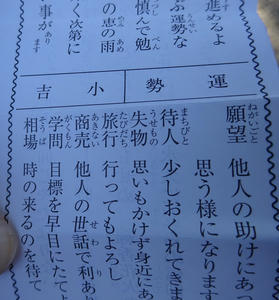 進めるよ
ぶ運勢な
慎んで勉
の恵の雨
、次第に
事が あります
運勢
小吉
願望 他人の助けにあっ
思う様になりま
待人 少しおくれてきま
失物 思いもかけず身近にあ
旅行 行ってもよろし
商売 他人の世話で利あり
学問 目標を早目にたてよ
相場 時の来るのを待て